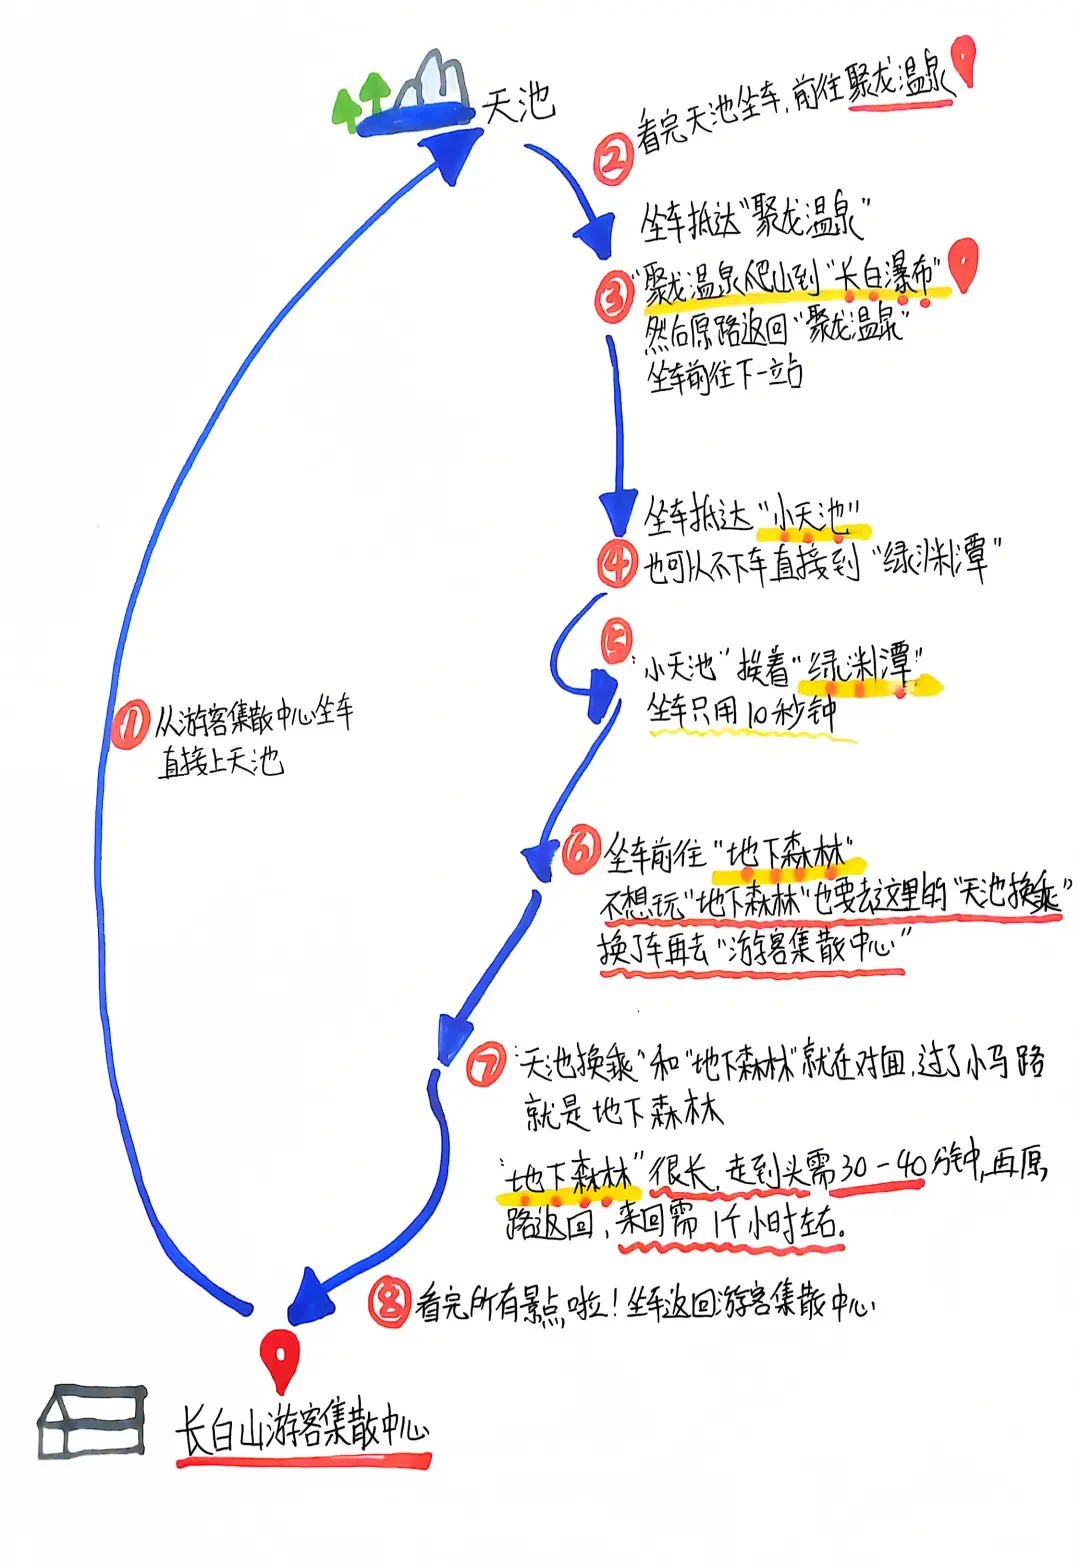 天池
② 看完天池坐车,前往聚龙温泉
坐车抵达"聚龙温泉"
③ "聚龙温泉爬山到"长白瀑布"
然后原路返回"聚龙温泉"
坐车前往下一站
坐车抵达"小天池"
④ 也可以不下车直接到"绿渊潭"
⑤
"小天池"挨着"绿渊潭"
坐车只用10秒钟
① 从游客集散中心坐车
直接上天池
⑥ 坐车前往"地下森林"
不想玩"地下森林"也要去这里的"天池换乘"
换了车再去"游客集散中心"
⑦ "天池换乘"和"地下森林"就在对面,过了小马路
就是地下森林
"地下森林"很长,走到头需30-40分钟,再原
路返回,来回需1个小时左右。
⑧ 看完所有景点啦!坐车返回游客集散中心
长白山游客集散中心